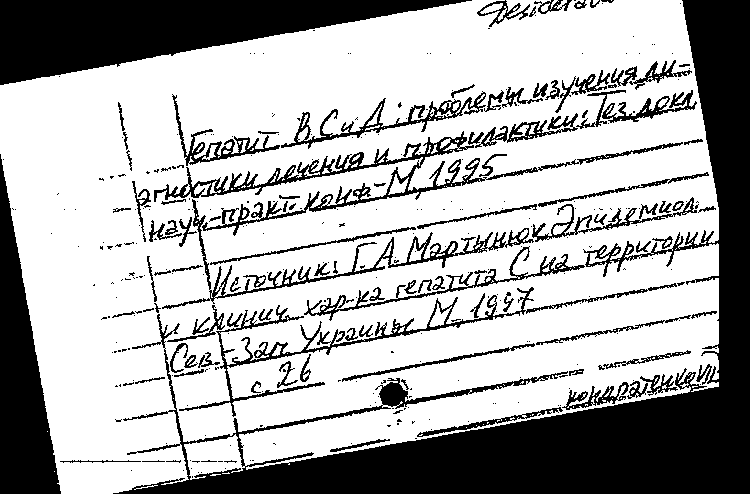 Desiderata
Гепатит В, С и Д : проблемы изучения, ди-
агностики, лечения и профилактики: Тез. докл.
науч.-практ. конф.- М., 1995
Источник: Г. А. Мартынюк. Эпидемиол.
и клинич. хар-ка гепатита С на территории
Сев.-Зап. Украины. М., 1997
с. 26
Кондратенко